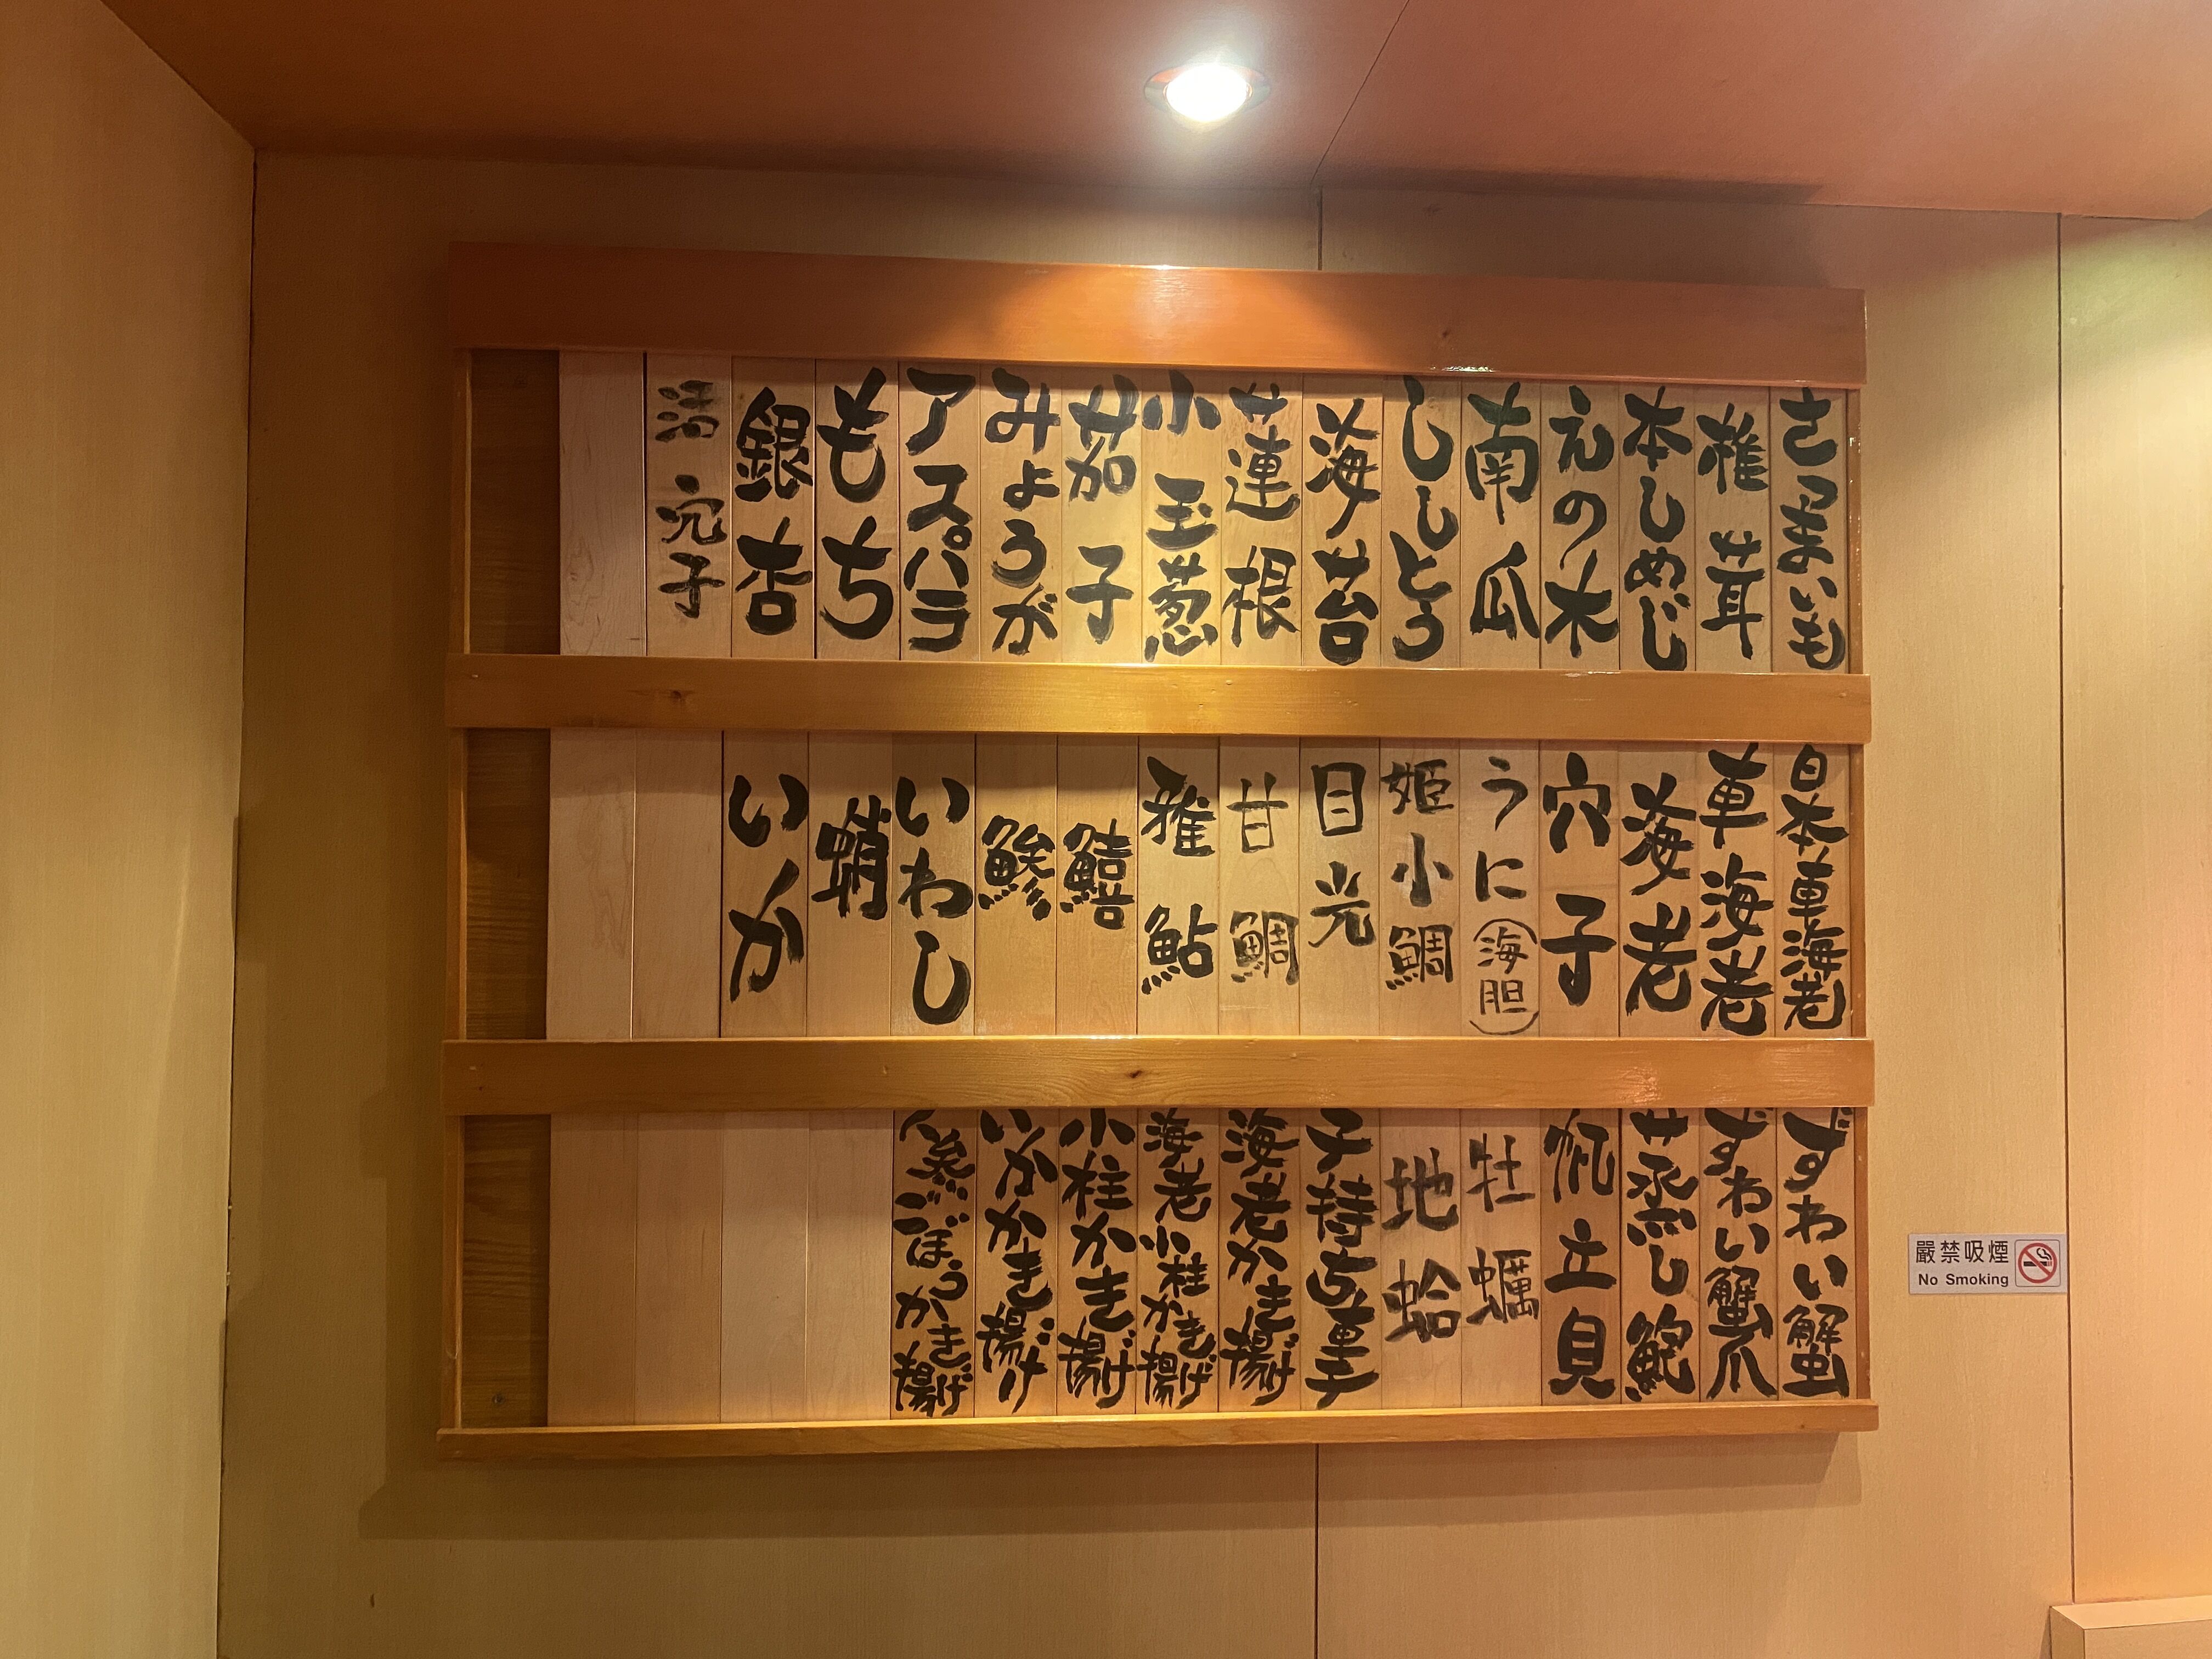 さつまいも
椎茸
本しめじ
えの木
南瓜
ししとう
海苔
蓮根
小玉葱
茄子
みょうが
アスパラ
もち
銀杏
活穴子
日本車海老
車海老
海老
穴子
うに(海胆)
姫小鯛
目光
甘鯛
稚鮎
鱚
鯵
いわし
蛸
いか
ずわい蟹
ずわい蟹爪
蒸し鮑
帆立貝
牡蠣
地蛤
子持ち昆布
海老かき揚げ
海老小柱かき揚げ
小柱かき揚げ
いかかき揚げ
ごぼうかき揚げ
嚴禁吸煙
No Smoking